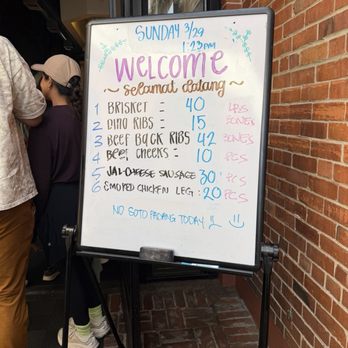 SUNDAY 3/29
1:23PM
WELCOME
~ Selamat datang ~
1 BRISKET = 40 LBS
2 DINO RIBS = 15 BONES
3 BEEF BACK RIBS 42 BONES
4 BEEF CHEEKS = 10 PCS
5 JAL-CHEESE SAUSAGE 30 PCS
6 SMOKED CHICKEN LEG : 20 PCS
NO SOTO PADANG TODAY :(